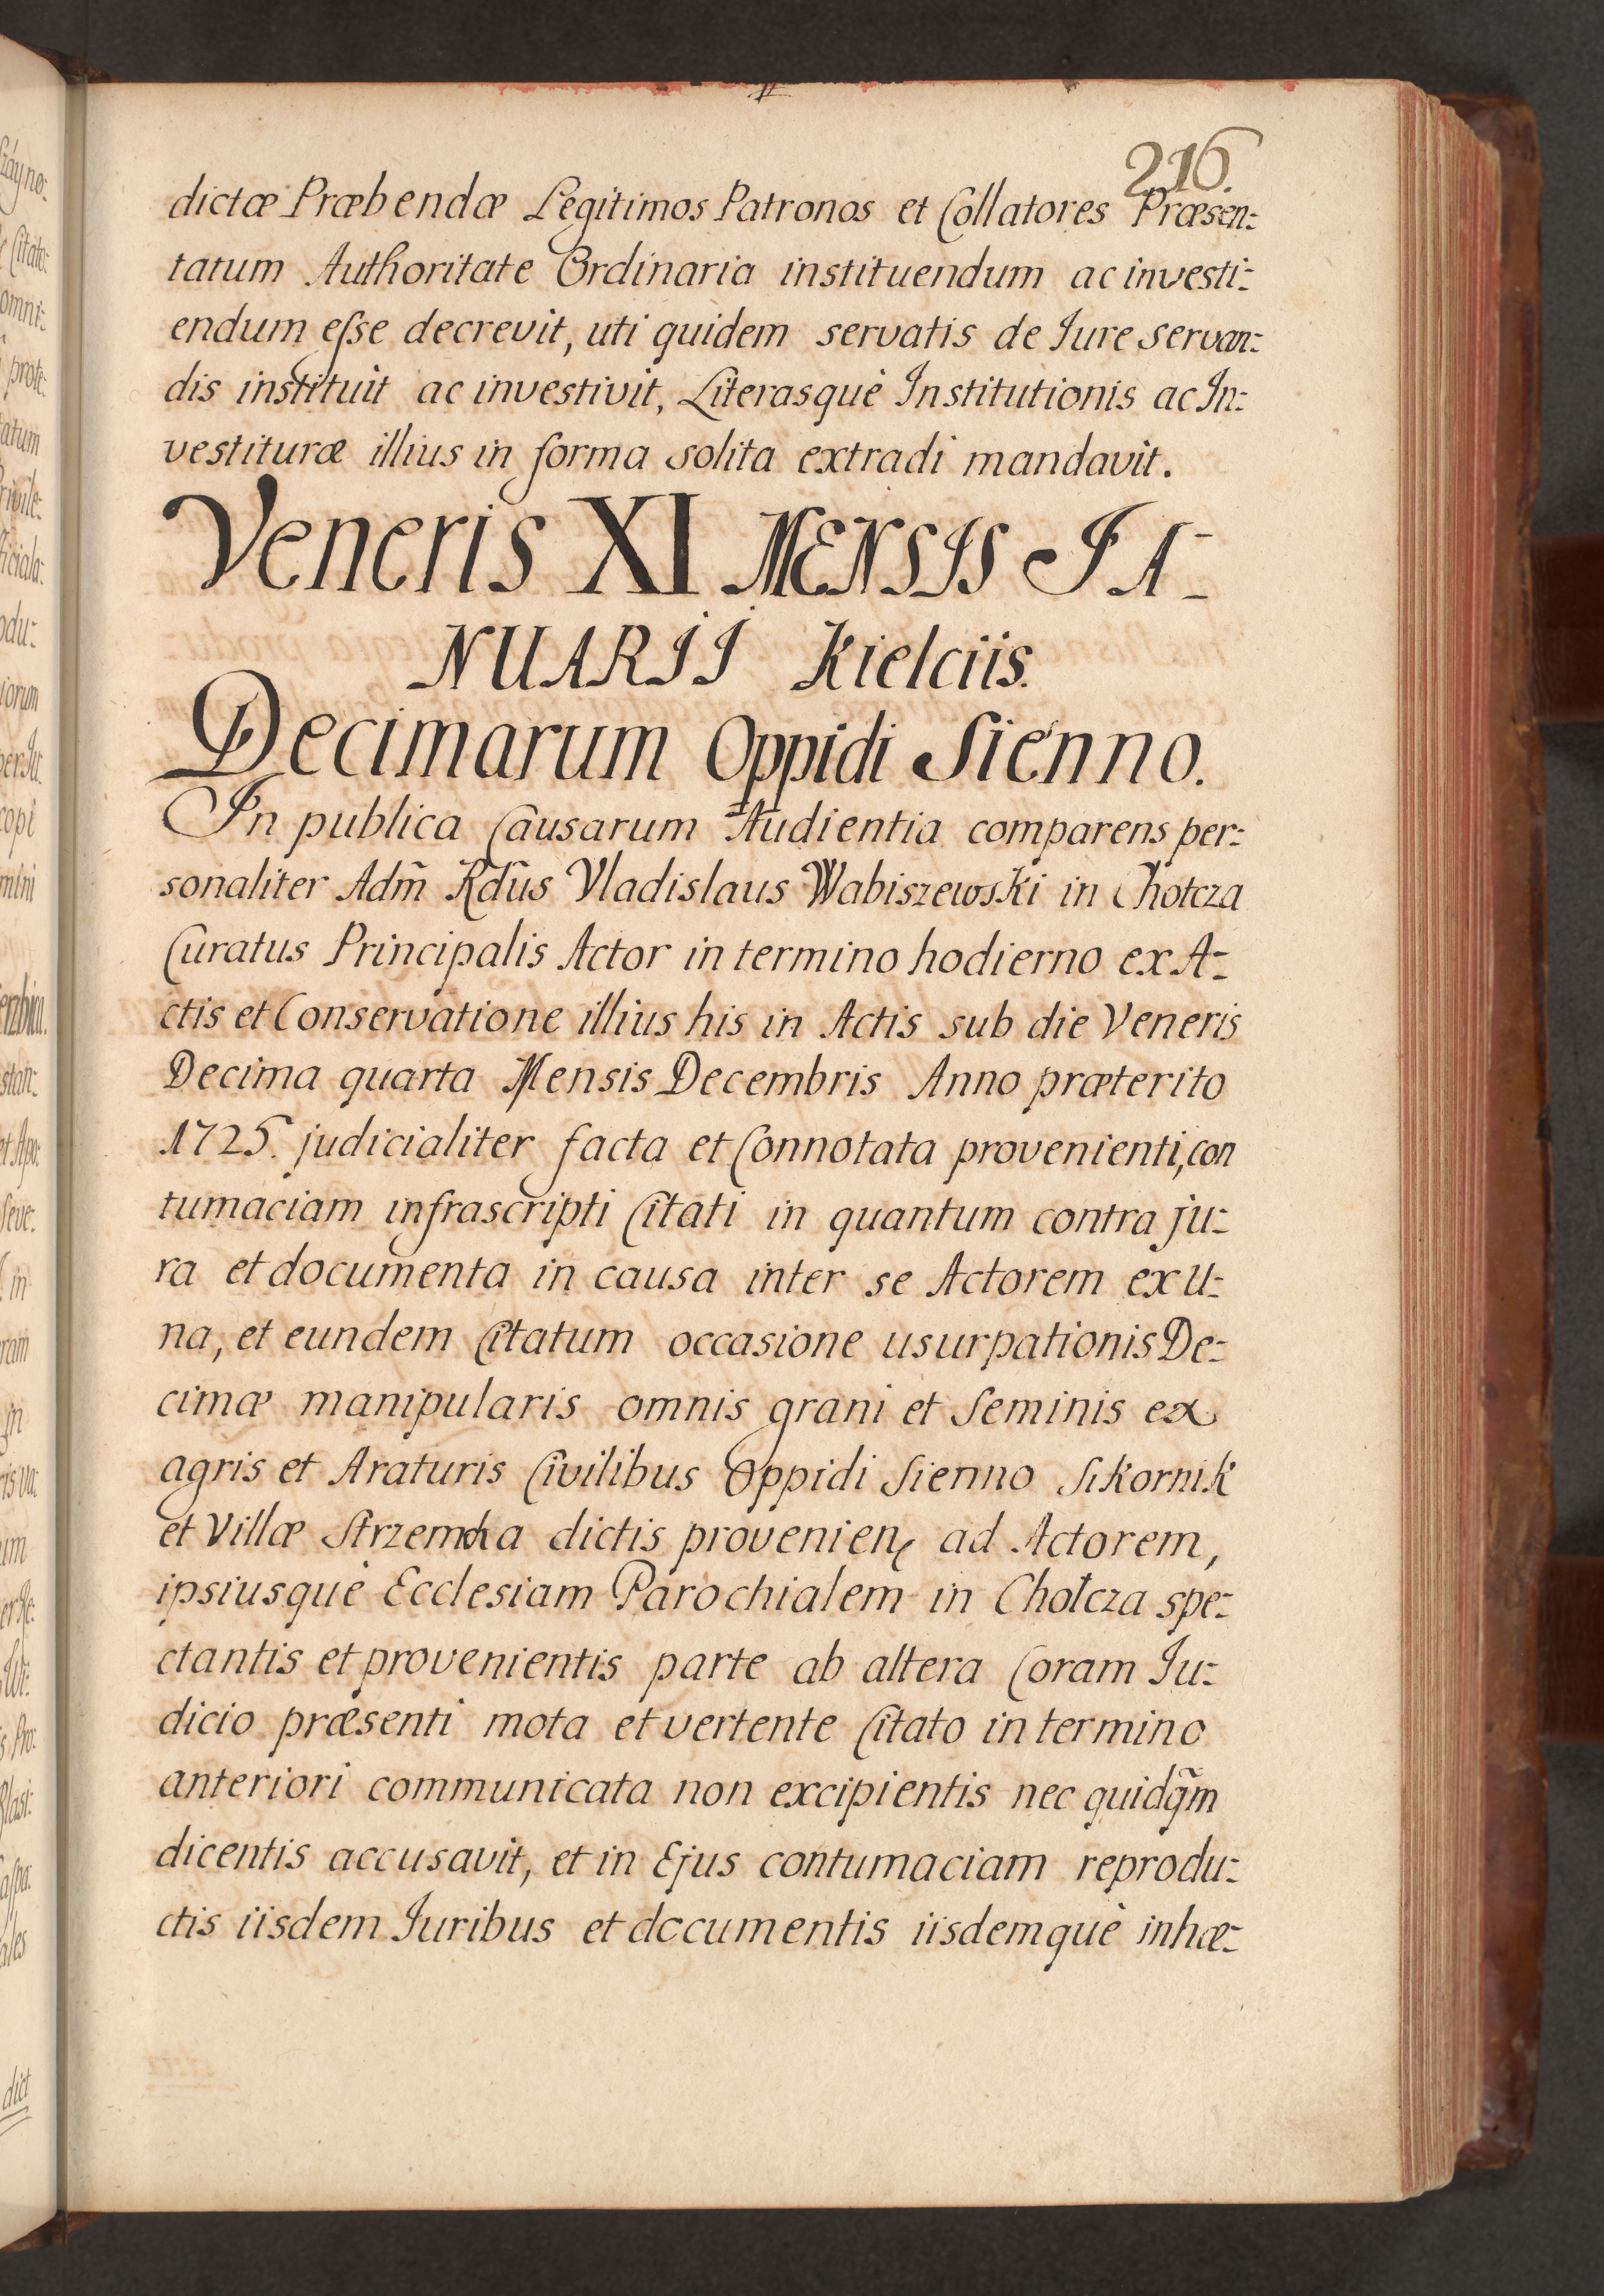 216.
dictæ Præbendæ Legitimos Patronos et Collatores Præsen:
tatum Authoritate Ordinaria instituendum ac investi:
endum eſse decrevit, uti quidem servatis de Jure servan:
dis instituit ac investivit, Literasquè Institutionis ac In:
vestituræ illius in forma solita extradi mandavit.
Veneris XI MENSIS JA-
NUARII Kielciis.
Decimarum Oppidi Sienno.
In publica Causarum Audientia comparens per:
sonaliter Adm̃ Rdūs Vladislaus Wabiszewski in Chotcza
Curatus Principalis Actor in termino hodierno ex A:
ctis et Conservatione illius his in Actis sub die Veneris
Decima quarta Mensis Decembris Anno præterito
1725. judicialiter facta et Connotata provenienti, con
tumaciam infrascripti Citati in quantum contra ju:
ra et documenta in causa inter se Actorem ex U:
na, et eundem Citatum occasione usurpationis De:
cimæ manipularis omnis grani et Seminis ex
agris et Araturis Civilibus Oppidi Sienno Sikornik
et Villæ dictis ad Actorem,
ipsiusquè Ecclesiam Parochialem in Chotcza spe:
ctantis et provenientis parte ab altera Coram Ju:
dicio præsenti mota et vertente Citato in termino
anteriori communicata non excipientis nec quidq̃m
dicentis accusavit, et in Ejus contumaciam reprodu:
ctis iisdem Juribus et documentis iisdemquè inhæ: